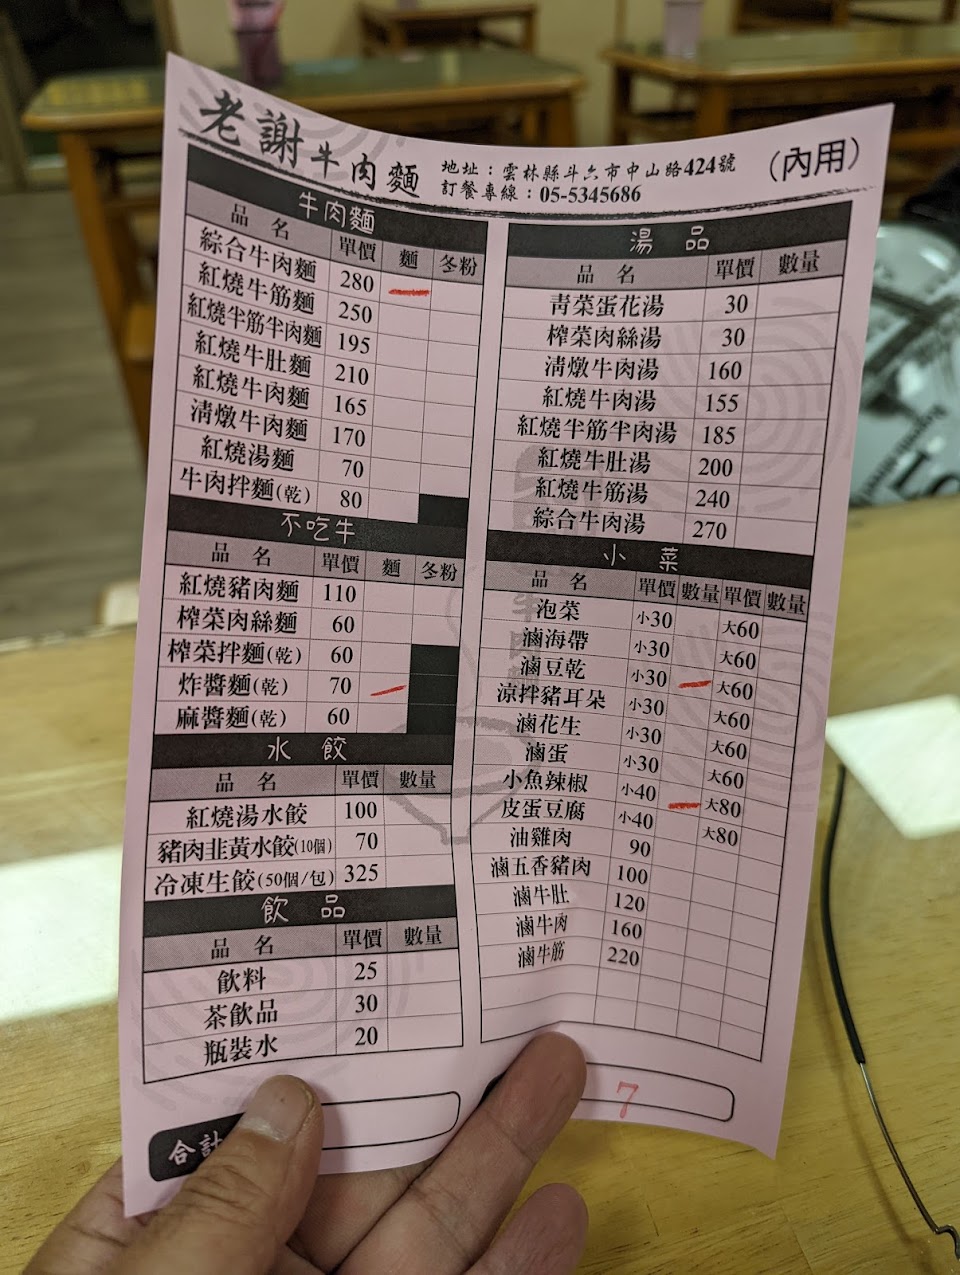 老謝牛肉麵
地址：雲林縣斗六市中山路424號
訂餐專線：05-5345686
（內用）
牛肉麵
品名 單價 麵 冬粉
綜合牛肉麵 280
紅燒牛筋麵 250
紅燒半筋半肉麵 195
紅燒牛肚麵 210
紅燒牛肉麵 165
清燉牛肉麵 170
紅燒湯麵 70
牛肉拌麵(乾) 80
不吃牛
品名 單價 麵 冬粉
紅燒豬肉麵 110
榨菜肉絲麵 60
榨菜拌麵(乾) 60
炸醬麵(乾) 70
麻醬麵(乾) 60
水餃
品名 單價 數量
紅燒湯水餃 100
豬肉韭黃水餃(10個) 70
冷凍生餃(50個/包) 325
飲品
品名 單價 數量
飲料 25
茶飲品 30
瓶裝水 20
合計
湯品
品名 單價 數量
青菜蛋花湯 30
榨菜肉絲湯 30
清燉牛肉湯 160
紅燒牛肉湯 155
紅燒半筋半肉湯 185
紅燒牛肚湯 200
紅燒牛筋湯 240
綜合牛肉湯 270
小菜
品名 單價 數量 單價 數量
泡菜 小30 大60
滷海帶 小30 大60
滷豆乾 小30 大60
涼拌豬耳朵 小30 大60
滷花生 小30 大60
滷蛋 小30 大60
小魚辣椒 小40 大80
皮蛋豆腐 小40 大80
油雞肉 90
滷五香豬肉 100
滷牛肚 120
滷牛肉 160
滷牛筋 220
7